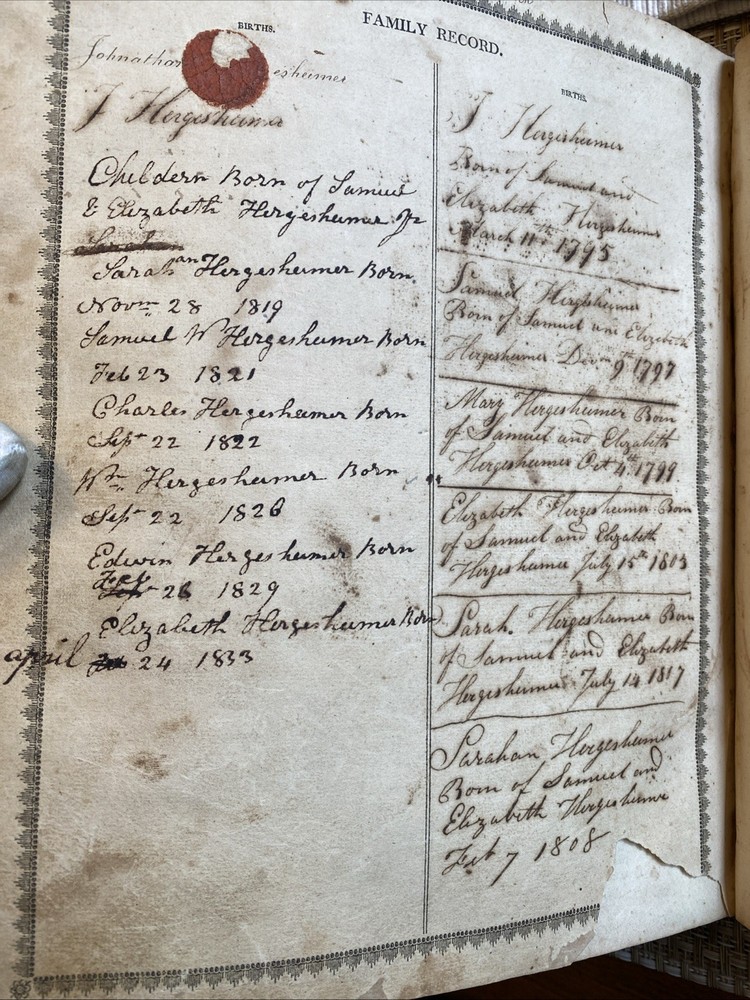 FAMILY RECORD.
BIRTHS.
Johnathan esheimer
J Hergesheimer
Childern Born of Samuel
& Elizabeth Hergesheimer Jr
Sarah an Hergesheimer Born
Novm 28 1819
Samuel W Hergesheimer Born
Feb 23 1821
Charles Hergesheimer Born
Sept 22 1822
Wm Hergesheimer Born
Sept 22 1826
Edwin Hergesheimer Born
26 1829
Elizabeth Hergesheimer Born
april 24 1833
BIRTHS.
J Hergesheimer
Born of Samuel and
Elizabeth Hergesheimer
March 11th 1795
Samuel Hergesheimer
Born of Samuel and Elizabeth
Hergesheimer 9th 1797
Mary Hergesheimer Born
of Samuel and Elizabeth
Hergesheimer Oct 4th 1799
Elizabeth Hergesheimer Born
of Samuel and Elizabeth
Hergesheimer July 15th
Sarah. Hergesheimer Born
of Samuel and Elizabeth
Hergesheimer July 14 1817
Sarahan Hergesheimer
Born of Samuel and
Elizabeth Hergesheime
Feb 7 1808